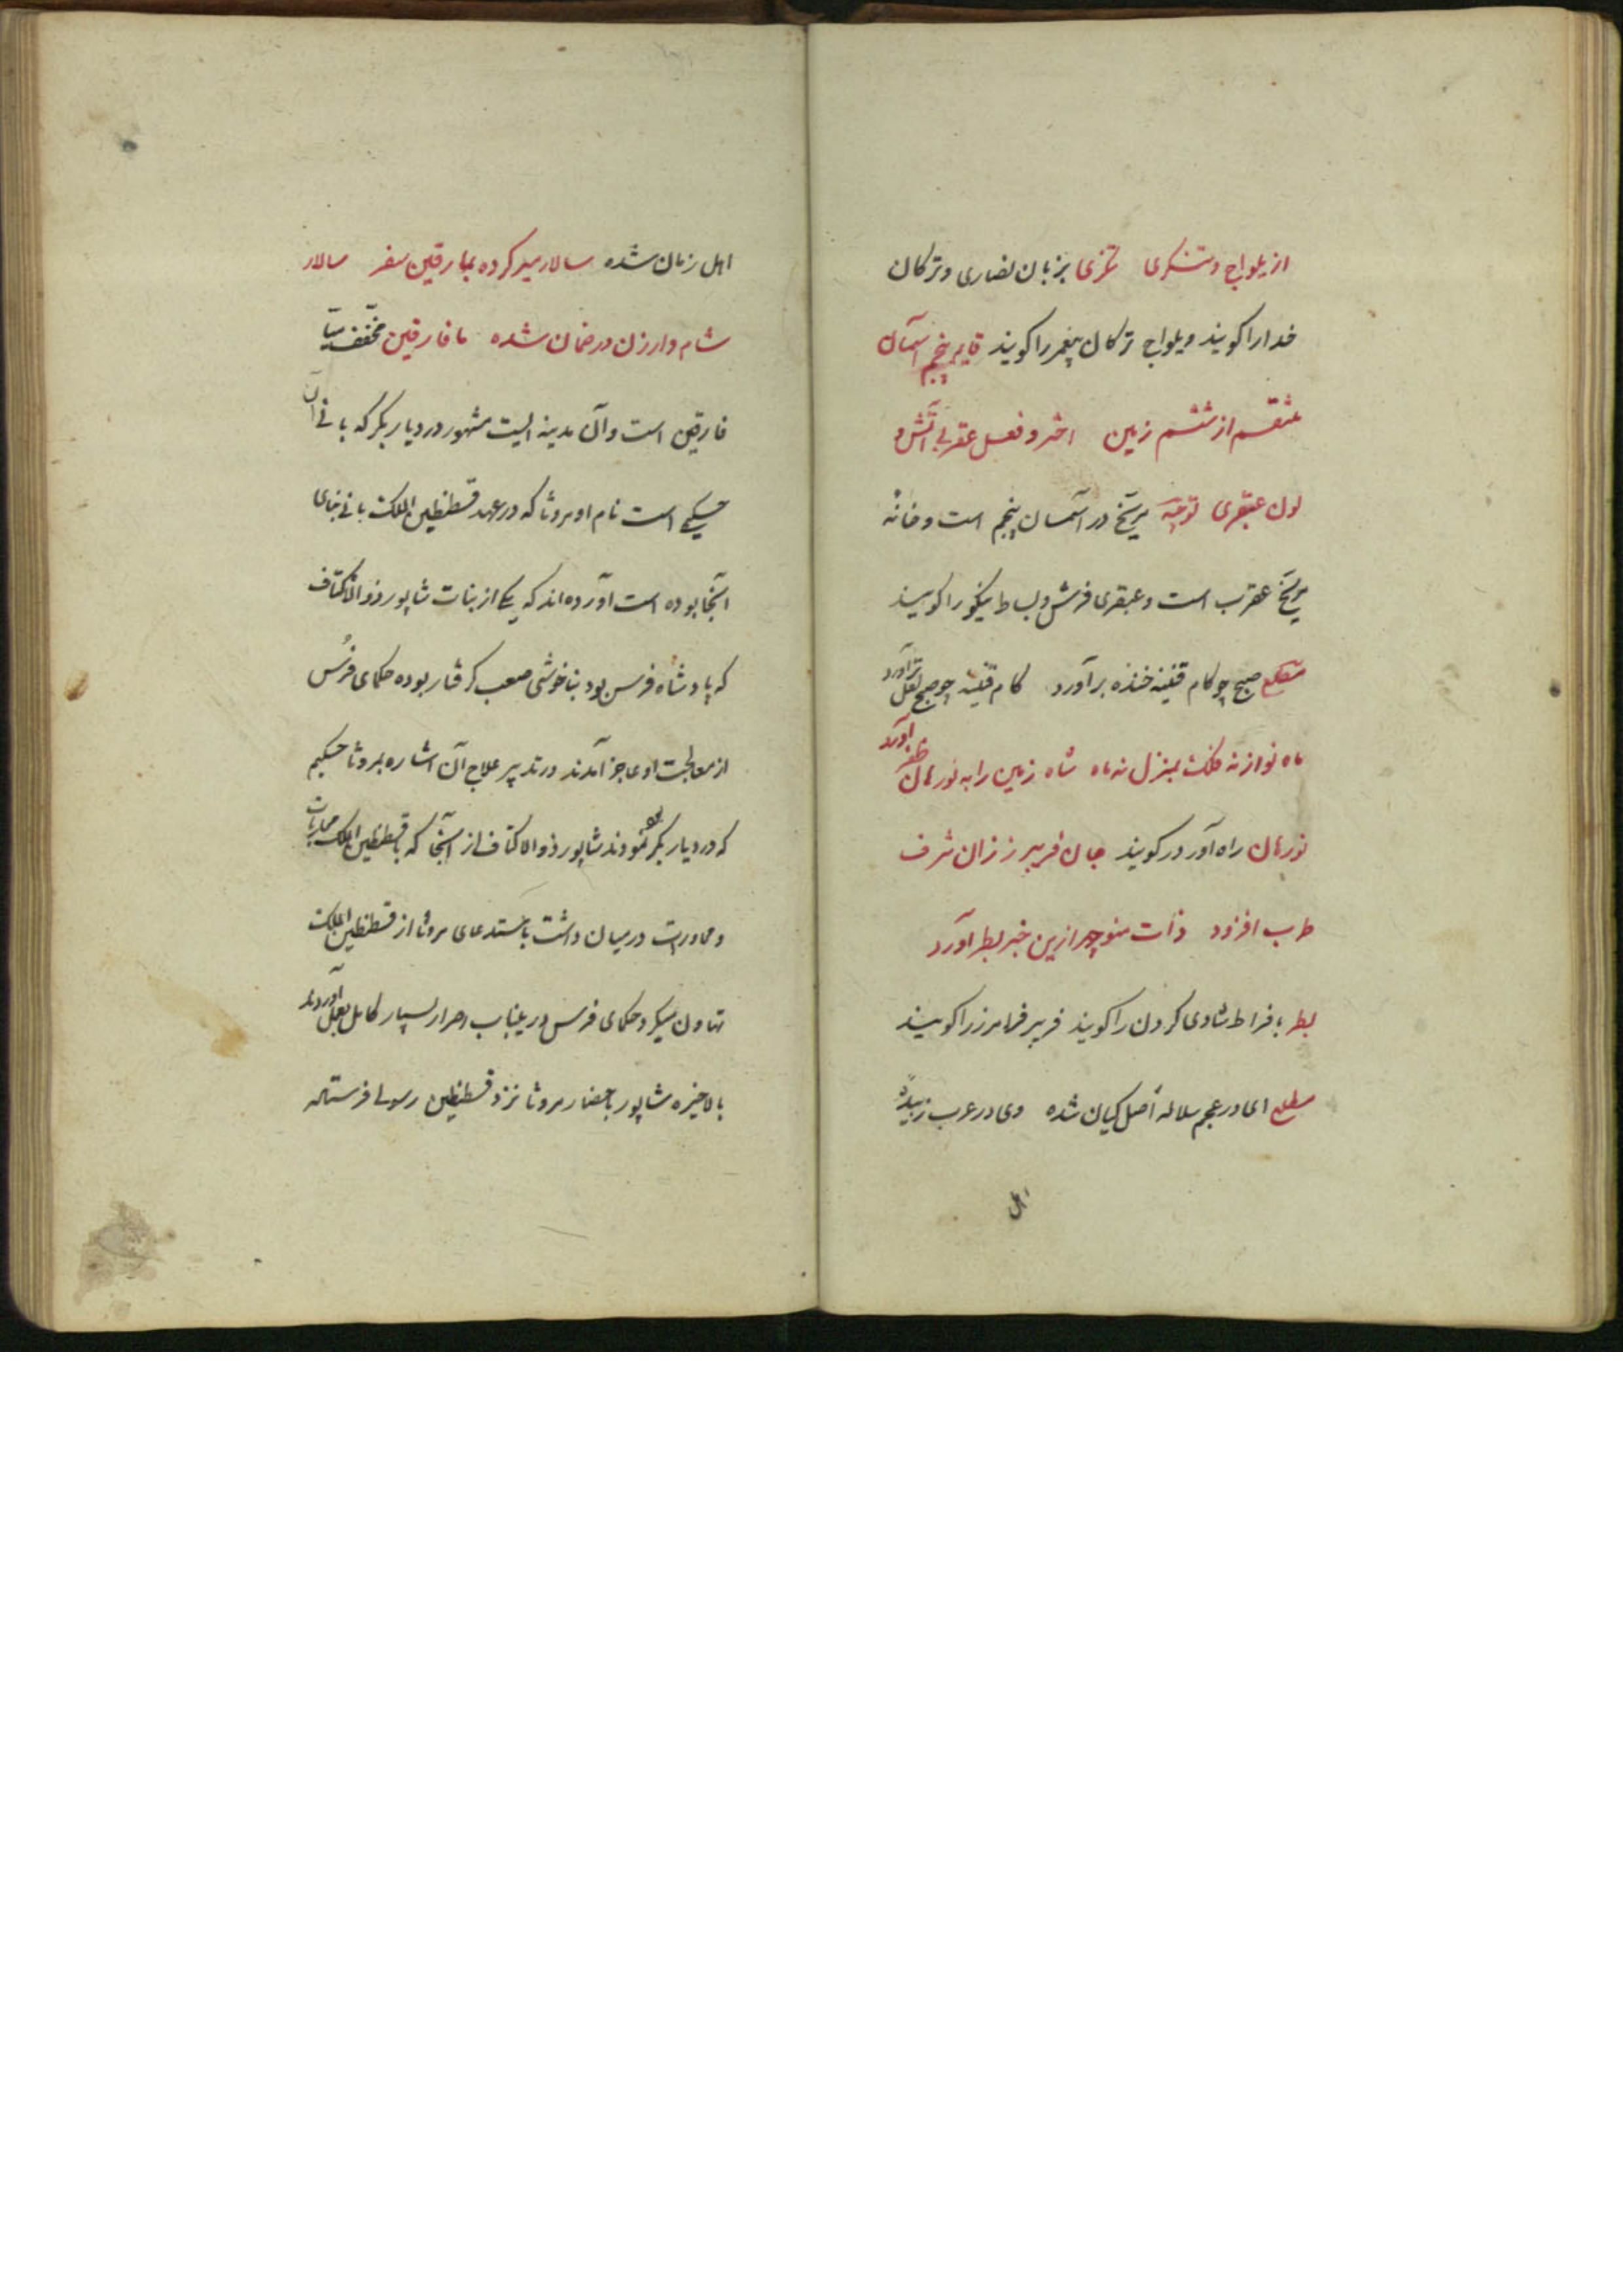 از یلواج و تنکری تنکری بزبان نصاری و ترکان
خدارا کویند و یلواج ترکان پیغمبر را کویند قاید پنجم آسمان
منقسم از ششم زمین اختر و فعل عقربی آتش و
لون عبقری توجیه مریخ در آسمان پنجم است و خانه
مریخ عقرب است و عبقری فرش و بساط نیکو را کویند
مطلع صبح چو کام قنینه خنده برآورد کام قنینه چو صبح لعل تر آورد
ماه نو از نه فلک بمنزل نه ماه شاه زمین را به نورهان ظفر آورد
نورهان راه آورد کویند جان فریبرز زان شرف
طرب افزود ذات منوچهر ازین خبر بطر آورد
بطر بافراط شادی کردن را کویند فریبر فرامرز را کویند
مطلع ای در عجم سلاله اصل کیان شده وی در عرب زبیده
اهل
اهل زمان شده سالار میر کرده بمارقین سفر سالار
شام و ارزن در ضمان شده مافارقین مخفف میا
فارقین است و آن مدینه ایست مشهور در دیار بکر که بانی آن
حکیمی است نام او مروثا که در عهد قسطنطین الملک بانی بنای
آنجا بوده است آورده اند که یکی از بنات شاپور ذو الاکتاف
که پادشاه فرس بود بناخوشی صعب کرفتار بوده حکمای فرس
از معالجت او عاجز آمدند در تدبیر علاج آن اشاره بمروثا حکیم
که در دیار بکر بود نمودند شاپور ذو الاکتاف از آنجا که با قسطنطین الملک محاربات
و محاورات در میان داشت باستدعای مروثا از قسطنطین الملک
تهاون میکرد حکمای فرس درینباب اصرار بسیار کامل بعمل آوردند
بالاخیره شاپور باحضار مروثا نزد قسطنطین رسولی فرستاد